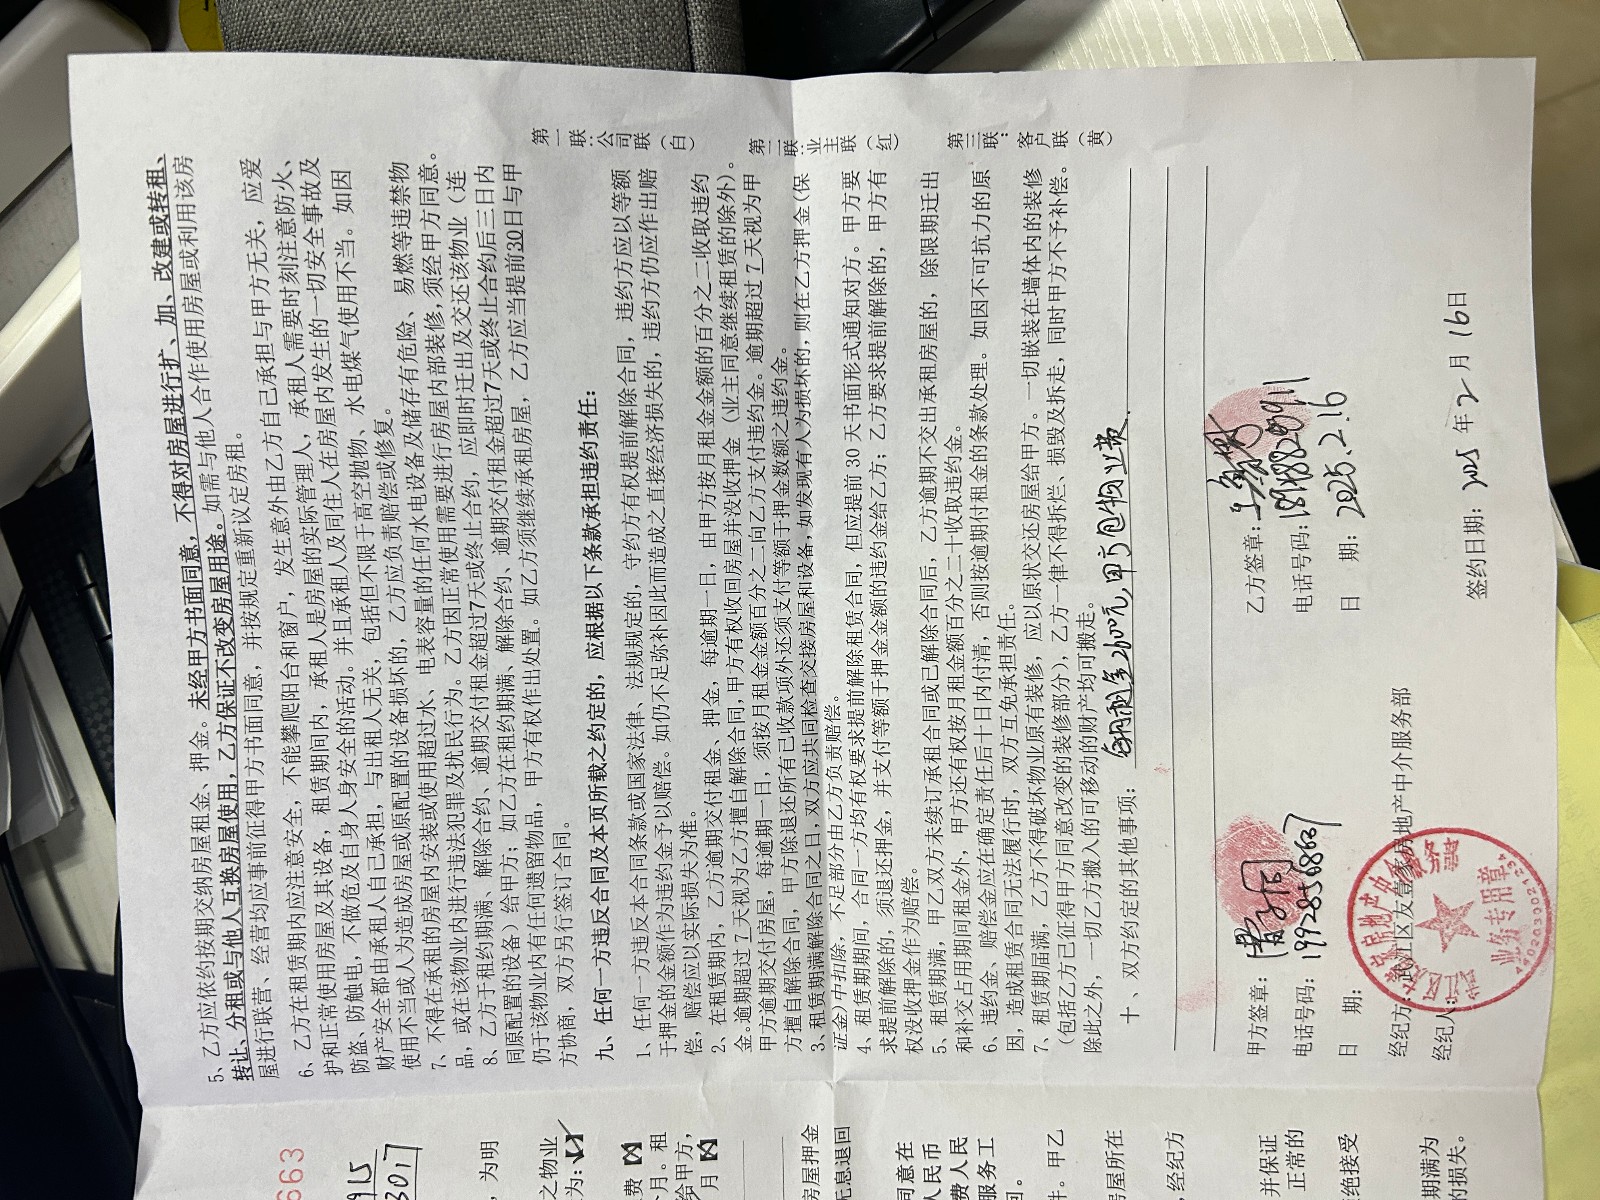 5、乙方应依约按期交纳房屋租金、押金。未经甲方书面同意，不得对房屋进行扩、加、改建或转租、
转让、分租或与他人互换房屋使用，乙方保证不改变房屋用途。如需与他人合作使用房屋或利用该房
屋进行联营、经营均应事前征得甲方书面同意，并按规定重新议定房租。
6、乙方在租赁期内应注意安全，不能攀爬阳台和窗户，发生意外由乙方自己承担与甲方无关，应爱
护和正常使用房屋及其设备，租赁期间内，承租人是房屋的实际管理人，承租人需要时刻注意防火、
防盗、防触电，不做危及自身人身安全的活动。并且承租人及同住人在房屋内发生的一切安全事故及
财产安全都由承租人自己承担，与出租人无关，包括但不限于高空抛物、水电煤气使用不当。如因
使用不当或人为造成房屋或原配置的设备损坏的，乙方应负责赔偿或修复。
7、不得在承租的房屋内安装或使用超过水、电表容量的任何水电设备及储存有危险、易燃等违禁物
品，或在该物业内进行违法犯罪及扰民行为。乙方因正常使用需要进行房屋内部装修，须经甲方同意。
8、乙方于租约期满、解除合约、逾期交付租金超过7天或终止合约，应即时迁出及交还该物业（连
同原配置的设备）给甲方；如乙方在租约期满、解除合约、逾期交付租金超过7天或终止合约后三日内
仍于该物业内有任何遗留物品，甲方有权作出处置。如乙方须继续承租房屋，乙方应当提前30日与甲
方协商，双方另行签订合同。
九、任何一方违反合同及本页所载之约定的，应根据以下条款承担违约责任：
1、任何一方违反本合同条款或国家法律、法规规定的，守约方有权提前解除合同，违约方应以等额
于押金的金额作为违约金予以赔偿。如仍不足弥补因此而造成之直接经济损失的，违约方仍应作出赔
偿，赔偿应以实际损失为准。
2、在租赁期内，乙方逾期交付租金、押金，每逾期一日，由甲方按月租金金额的百分之二收取违约
金。逾期超过7天视为乙方擅自解除合同，甲方有权收回房屋并没收押金（业主同意继续租赁的除外）。
甲方逾期交付房屋，每逾期一日，须按月租金金额百分之二向乙方支付违约金。逾期超过7天视为甲
方擅自解除合同，甲方除退还所有已收款项外还须支付等额于押金数额之违约金。
3、租赁期满解除合同之日，双方应共同检查交接房屋和设备，如发现有人为损坏的，则在乙方押金（保
证金）中扣除，不足部分由乙方负责赔偿。
4、租赁期期间，合同一方均有权要求提前解除租赁合同，但应提前30天书面形式通知对方。甲方要
求提前解除的，须退还押金，并支付等额于押金金额的违约金给乙方；乙方要求提前解除的，甲方有
权没收押金作为赔偿。
5、租赁期满，甲乙双方未续订承租合同或已解除合同后，乙方逾期不交出承租房屋的，除限期迁出
和补交占用期间租金外，甲方还有权按月租金额百分之二十收取违约金。
6、违约金、赔偿金应在确定责任后十日内付清，否则按逾期付租金的条款处理。如因不可抗力的原
因，造成租赁合同无法履行时，双方互免承担责任。
7、租赁期届满，乙方不得破坏物业原有装修，应以原状交还房屋给甲方。一切嵌装在墙体内的装修
（包括乙方已征得甲方同意改变的装修部分），乙方一律不得拆烂、损毁及拆走，同时甲方不予补偿。
除此之外，一切乙方搬入的可移动的财产均可搬走。
十、双方约定的其他事项：每月租金2600元，甲方包物业费.
甲方签章：
电话号码：19928598667
日 期：
乙方签章：
电话号码：18988290911
日 期：2025.2.16
经纪方：武江区友壹家房地产中介服务部
经纪人：
签约日期：2025年2月16日
业务专用章
第一联：公司联（白）
第二联：业主联（红）
第三联：客户联（黄）
663
915
，为明
之物业
为：
费
个月。租
给甲方，
月
房屋押金
无息退回
同意在
人民币
费人民
服务工
回。
件。甲乙
房屋所在
，经纪方
并保证
正常的
绝接受
期满为
的损失。